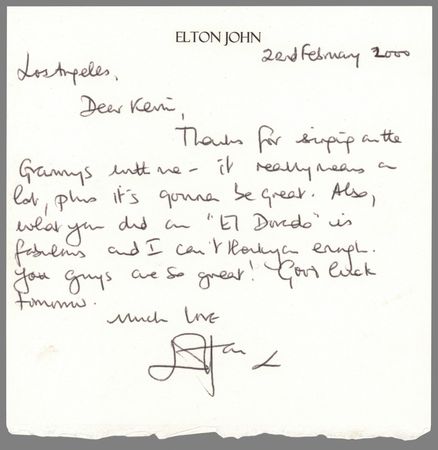 ELTON JOHN
22nd February 2000
Los Angeles,
Dear Kevin,
Thanks for singing on the
Grammys with me - it really means a
lot, plus it's gonna be great. Also,
what you did on "El Dorado" is
fabulous and I can't thank you enough.
You guys are so great! Good luck
tomorrow.
Much Love
Elton